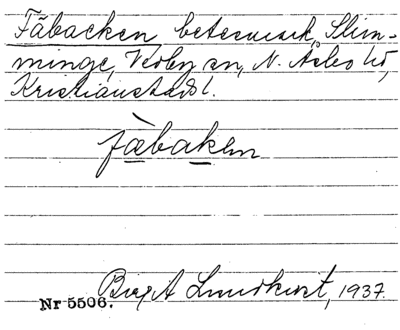 Fäbacken betesmark, Slim-
minge, Verby sn, N. Åsbo hd,
Kristianstads l.
fäbaken
Birgit Lundkvist, 1937.
Nr 5506.